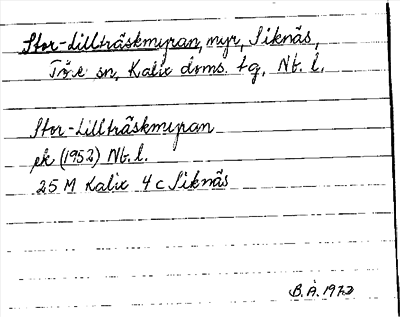 Stor-Lillträskmyran, myr, Siknäs,
Töre sn, Kalix doms. tg, Nb. l.
Stor-Lillträskmyran
ek (1952) Nb. l.
25 M Kalix 4c Siknäs
B.Å. 1972